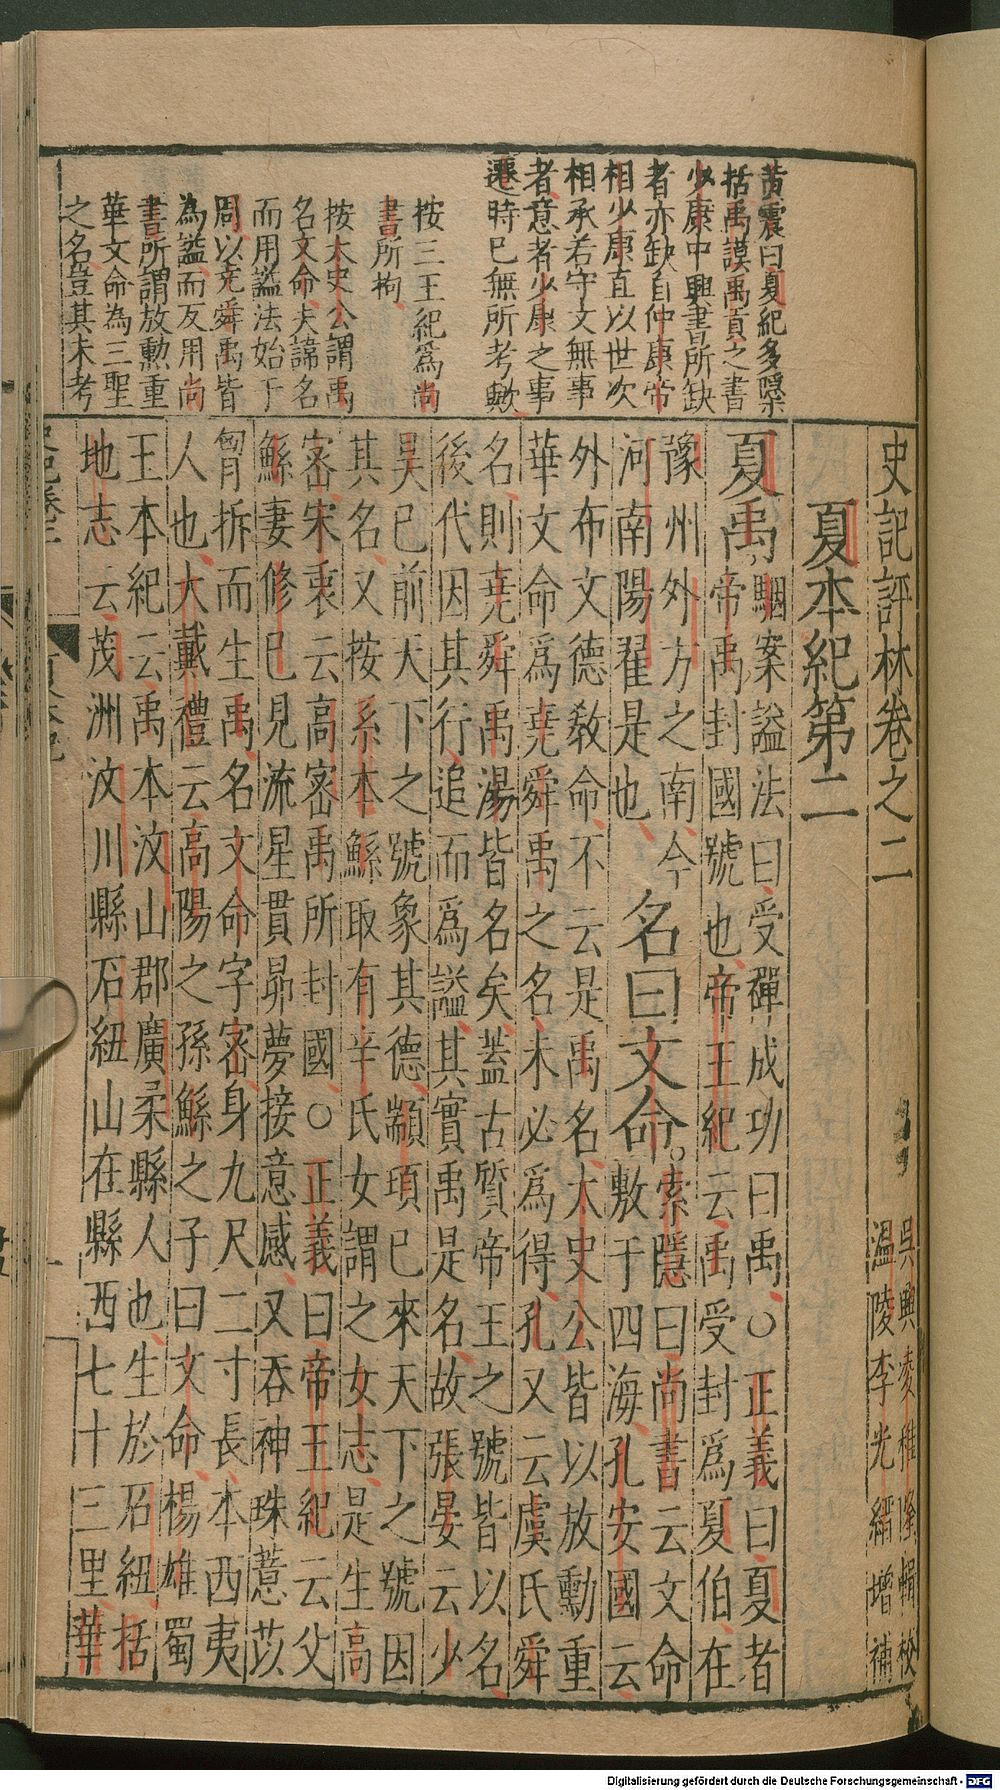 黃震曰夏紀多隱
括禹謨禹貢之書
少康中興書所缺
者亦缺自仲康帝
相少康直以世次
相承若守文無事
者意者少康之事
遷時已無所考歟
按三王紀爲尚
書所拘
按太史公謂禹
名文命夫諱名
而用謚法始于
周以堯舜禹皆
為謚而反用尚
書所謂放勳重
華文命為三聖
之名豈其未考
史記評林卷之二
吳興凌稚隆輯校
溫陵李光縉增補
夏本紀第二
夏禹
駰案謚法曰受禪成功曰禹○正義曰夏者
帝禹封國號也帝王紀云禹受封爲夏伯在
豫州外方之南今
河南陽翟是也
名曰文命。
索隱曰尚書云文命
敷于四海孔安國云
外布文德敎命不云是禹名太史公皆以放勳重
華文命爲堯舜禹之名未必爲得孔又云虞氏舜
名則堯舜禹湯皆名矣蓋古質帝王之號皆以名
後代因其行追而爲謚其實禹是名故張晏云少
昊已前天下之號象其德顓頊已來天下之號因
其名又按系本鯀取有辛氏女謂之女志是生高
密宋衷云高密禹所封國○正義曰帝王紀云父
鯀妻修己見流星貫昴夢接意感又吞神珠薏苡
胷拆而生禹名文命字密身九尺二寸長本西夷
人也大戴禮云高陽之孫鯀之子曰文命楊雄蜀
王本紀云禹本汶山郡廣柔縣人也生於石紐括
地志云茂洲汶川縣石紐山在縣西七十三里華
Digitalisierung gefördert durch die Deutsche Forschungsgemeinschaft - DFG